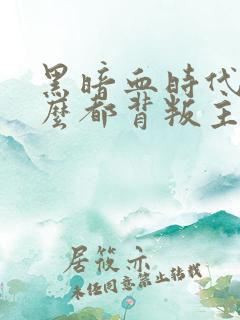 黑暗血時代
麼都背叛主
居筱亦
未经同意禁止转载